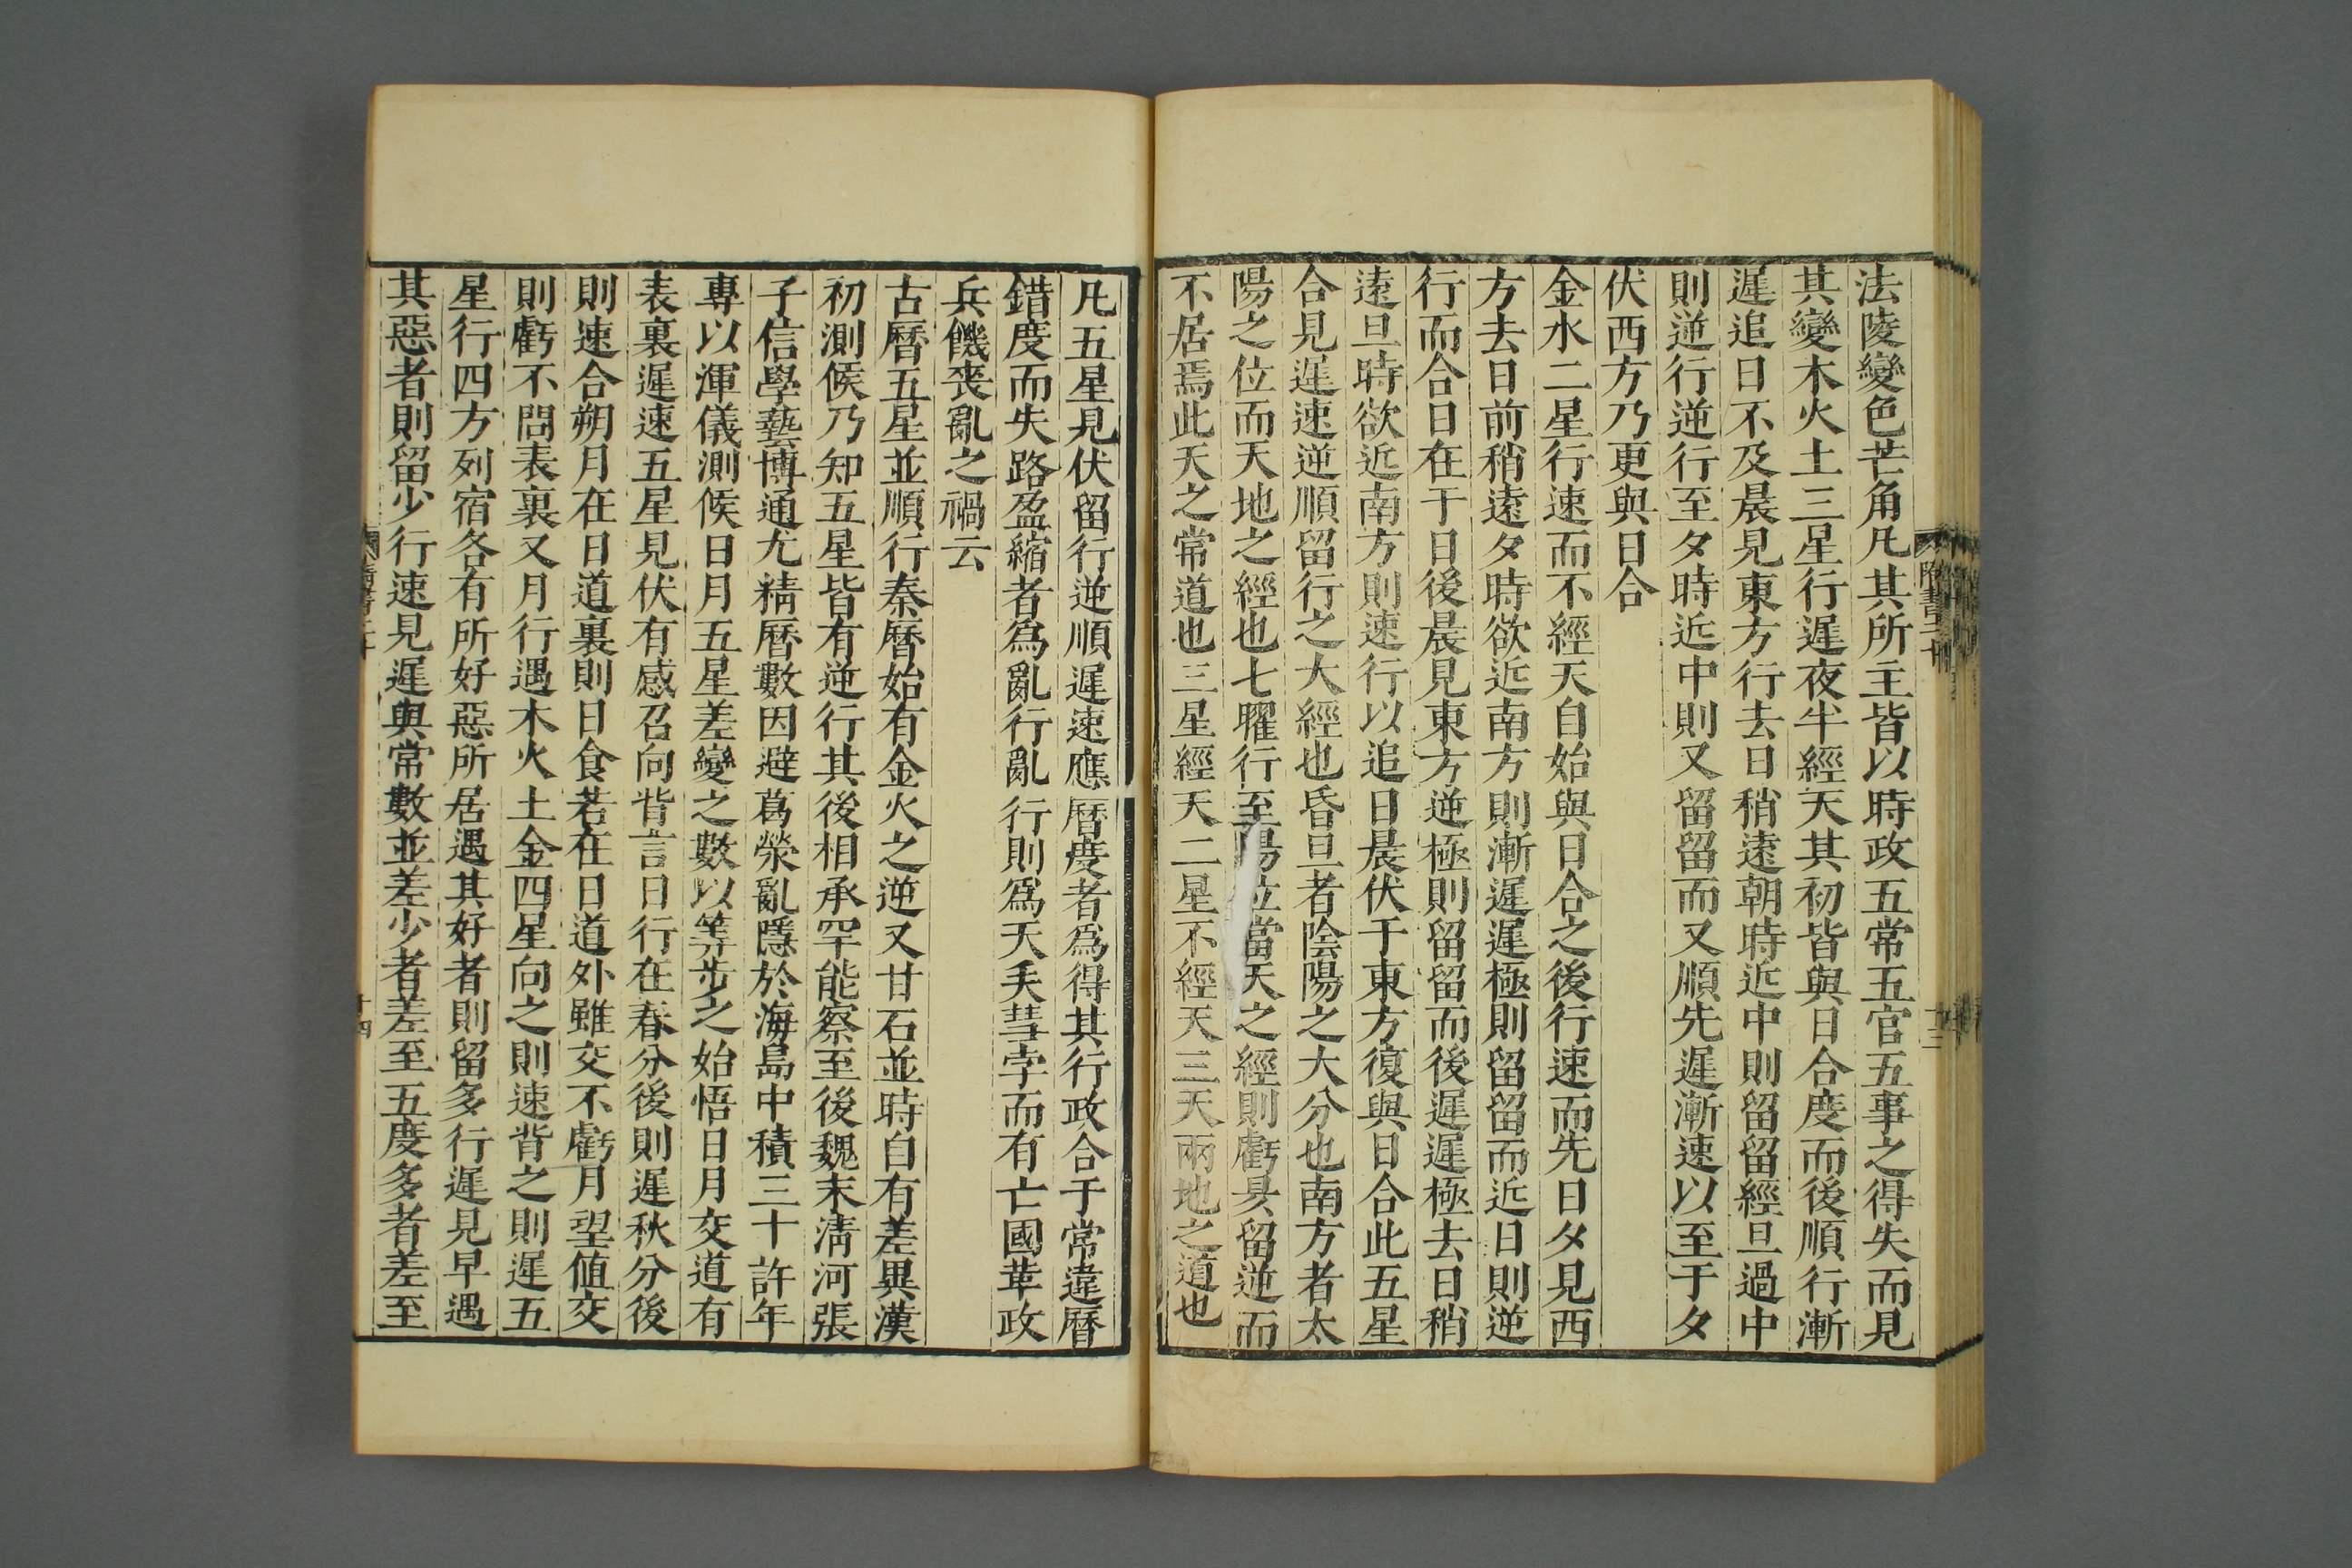 法陵變色芒角凡其所主皆以時政五常五官五事之得失而見
其變木火土三星行遲夜半經天其初皆與日合度而後順行漸
遲追日不及晨見東方行去日稍遠朝時近中則留留經旦過中
則逆行逆行至夕時近中則又留留而又順先遲漸速以至于夕
伏西方乃更與日合
金水二星行速而不經天自始與日合之後行速而先日夕見西
方去日前稍遠夕時欲近南方則漸遲遲極則留留而近日則逆
行而合日在于日後晨見東方逆極則留留而後遲遲極去日稍
遠旦時欲近南方則速行以追日晨伏于東方復與日合此五星
合見遲速逆順留行之大經也昏旦者陰陽之大分也南方者太
陽之位而天地之經也七曜行至陽位當天之經則虧昃留逆而
不居焉此天之常道也三星經天二星不經天三天兩地之道也
隋書二十
十三
凡五星見伏留行逆順遲速應曆度者爲得其行政合于常違曆
錯度而失路盈縮者爲亂行亂行則爲天矢彗孛而有亡國革政
兵饑喪亂之禍云
古曆五星並順行秦曆始有金火之逆又甘石並時自有差異漢
初測候乃知五星皆有逆行其後相承罕能察至後魏末淸河張
子信學藝博通尤精曆數因避葛榮亂隱於海島中積三十許年
專以渾儀測候日月五星差變之數以筭步之始悟日月交道有
表裏遲速五星見伏有感召向背言日行在春分後則遲秋分後
則速合朔月在日道裏則日食若在日道外雖交不虧月望値交
則虧不問表裏又月行遇木火土金四星向之則速背之則遲五
星行四方列宿各有所好惡所居遇其好者則留多行遲見早遇
其惡者則留少行速見遲與常數並差少者差至五度多者差至
十四